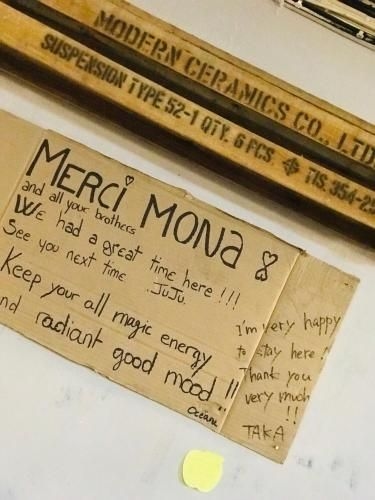 MODERN CERAMICS CO., LTD
SUSPENSION TYPE 52-1 QTY. 6 PCS TIS. 354-25
MERCi MONa
and all your brothers
We had a great time here !!!
See you next time .JuJu.
Keep your all magic energy
nd radiant good mood !!
Océane
i'm very happy
to stay here !
Thank you
very much
!!
TAKA